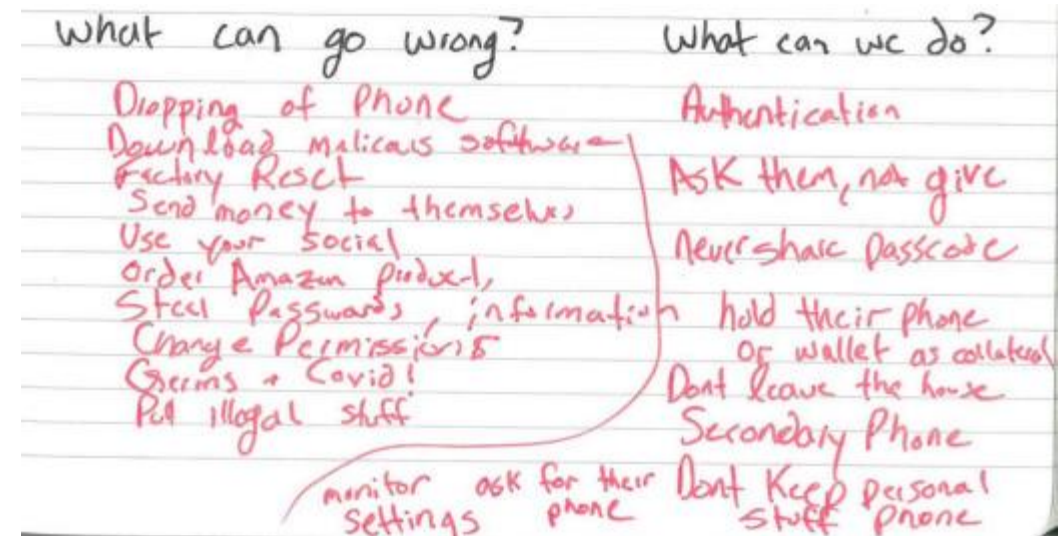 What can go wrong?
Dropping of Phone
Download malicous software
Factory Reset
Send money to themselves
Use your social
Order Amazon product,
Steel Passwords, information
Change Permissions
Germs + Covid!
Put illegal stuff
monitor settings
ask for their phone
What can we do?
Authentication
Ask them, not give
never share passcode
hold their phone
or wallet as collateral
Dont leave the house
Secondary Phone
Dont Keep personal
stuff phone